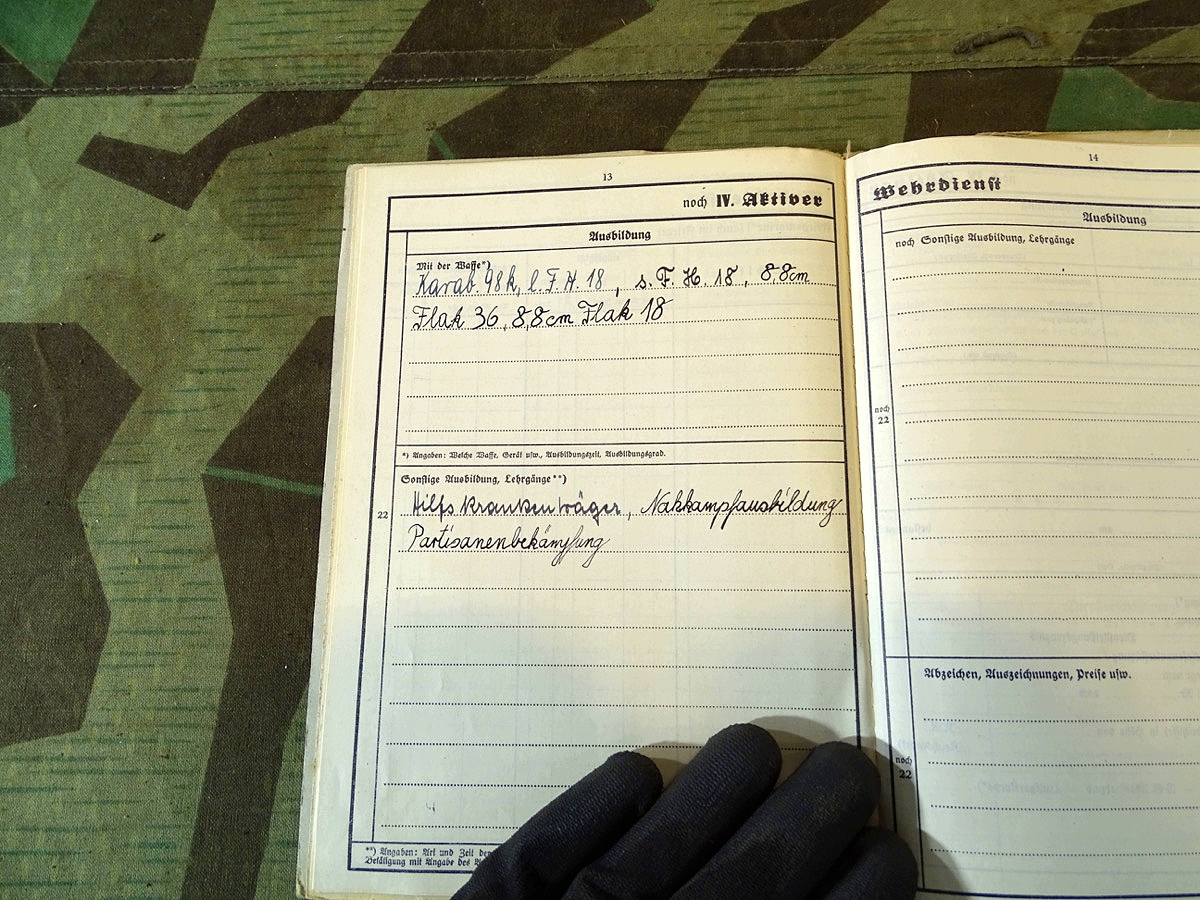 13
noch IV. Aktiver
Ausbildung
Mit der Waffe*)
Karab. 98k, l. F. H. 18, s. F. H. 18, 8,8cm
Flak 36, 8,8cm Flak 18
*) Angaben: Welche Waffe, Gerät usw., Ausbildungszeit, Ausbildungsgrad.
Sonstige Ausbildung, Lehrgänge**)
22
Hilfskrankenträger, Nahkampfausbildung
Partisanenbekämpfung
**) Angaben: Art und Zeit der
Befätigung mit Angabe des
14
Wehrdienst
Ausbildung
noch Sonstige Ausbildung, Lehrgänge
noch
22
Abzeichen, Auszeichnungen, Preise usw.
noch
22